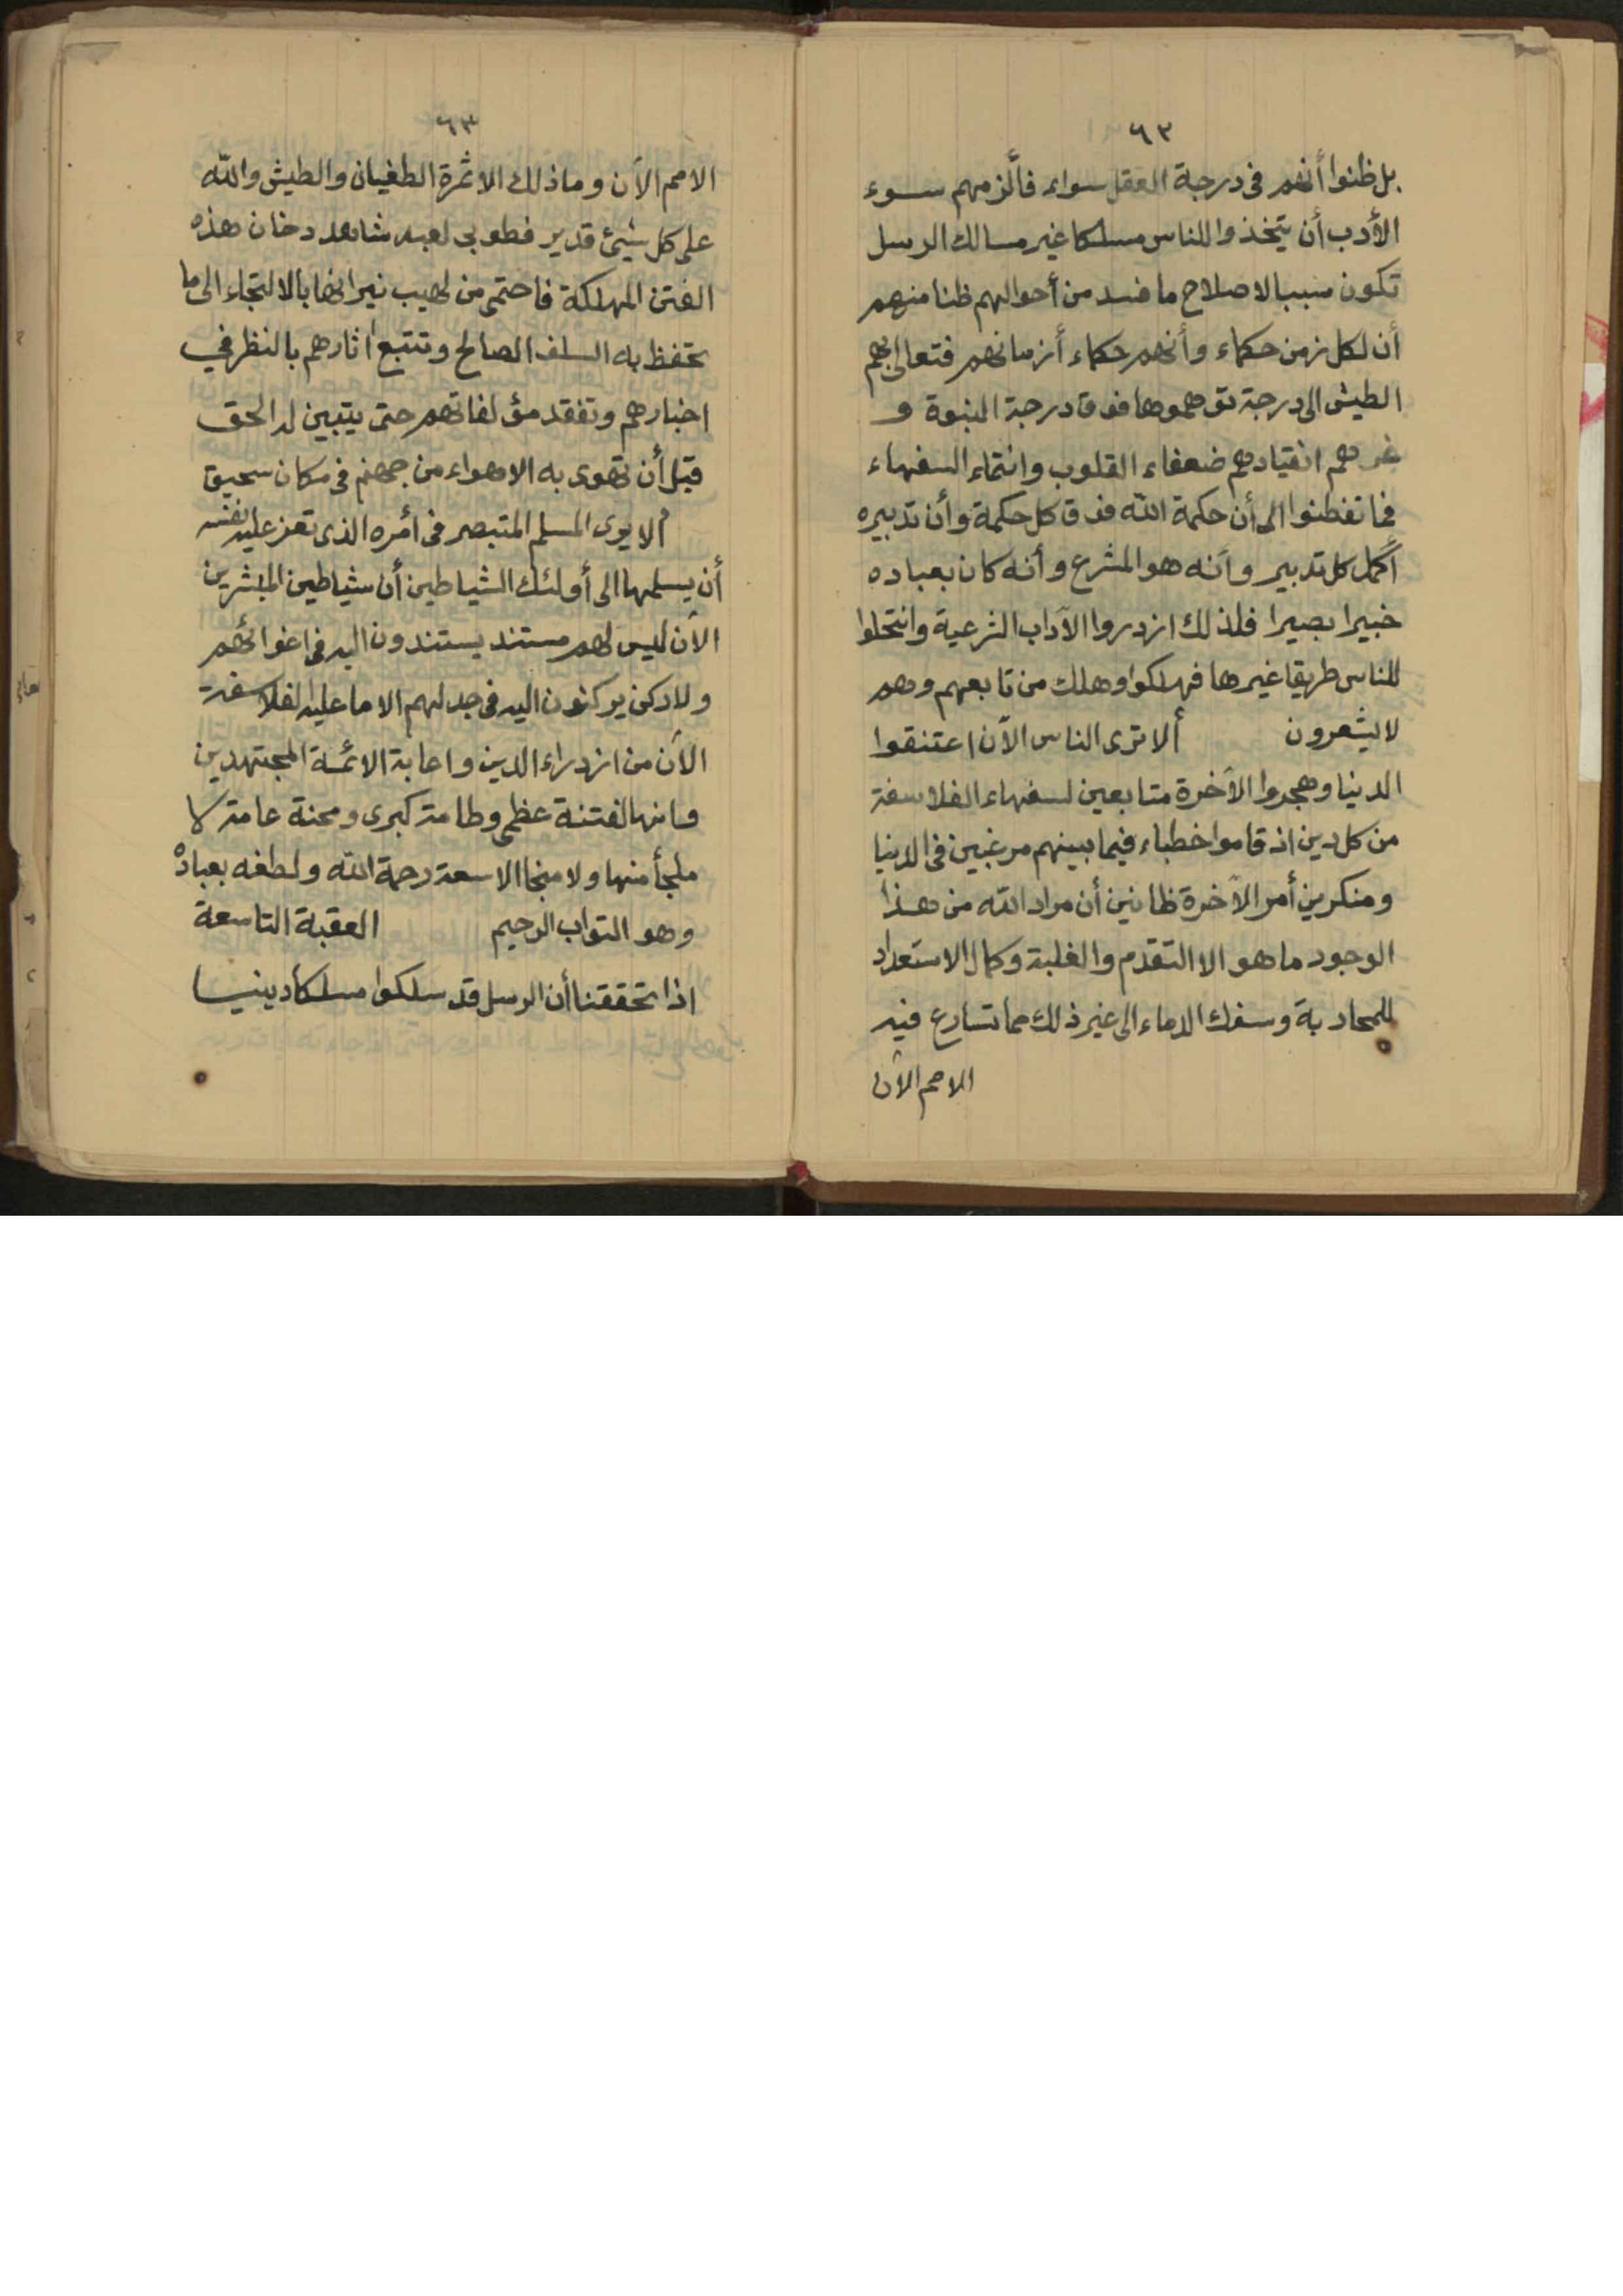 ٦٢
بل ظنوا أنهم فى درجة العقل سواء فألزمهم سوء
الأدب أن يتخذوا للناس مسلكا غير مسالك الرسل
تكون سببا لاصلاح ما فسد من أحوالهم ظنا منهم
أن لكل زمن حكماء وأنهم حكماء أزمانهم فتعالى بهم
الطيش الى درجة توهموها فوق درجة النبوة و
غرهم انقيادهم ضعفاء القلوب وانتماء السفهاء
فما تفطنوا الى أن حكمة الله فوق كل حكمة وأن تدبيره
أكمل كل تدبير وأنه هو المشرع وأنه كان بعباده
خبيرا بصيرا فلذلك ازدروا الآداب الشرعية وانتحلوا
للناس طريقا غيرها فهلكوا وهلك من تابعهم وهم
لا يشعرون ألا ترى الناس الآن اعتنقوا
الدنيا وهجروا الآخرة متابعين لسفهاء الفلاسفة
من كل دين اذ قاموا خطباء فيما بينهم مرغبين فى الدنيا
ومنكرين أمر الآخرة ظانين أن مراد الله من هذا
الوجود ما هو الا التقدم والغلبة وكمال الاستعداد
للمحاربة وسفك الدماء الى غير ذلك مما تسارع فيه
الامم الآن
٦٣
الامم الآن وما ذلك الا ثمرة الطغيان والطيش والله
على كل شيئ قدير فطوبى لعبد شاهد دخان هذه
الفتن المهلكة فاحتمى من لهيب نيرانها بالالتجاء الى ما
تحفظ به السلف الصالح وتتبع اثارهم بالنظر في
اخبارهم وتفقد مؤلفاتهم حتى يتبين له الحق
قبل أن تهوى به الاهواء من جهنم فى مكان سحيق
ألا يرى المسلم المتبصر فى أمره الذى تعز عليه نفسه
أن يسلمها الى أولئك الشياطين أن شياطين المبشرين
الآن ليس لهم مستند يستندون اليه فى اغوائهم
ولا ركن يركنون اليه فى جدلهم الا ما عليه الفلاسفة
الآن من ازدراء الدين واعابة الائمة المجتهدين
وانها لفتنة عظمى وطامة كبرى ومحنة عامة لا
ملجأ منها ولا منجا الا سعة رحمة الله ولطفه بعباده
وهو التواب الرحيم العقبة التاسعة
اذا تحققنا أن الرسل قد سلكوا مسلكا دينيا